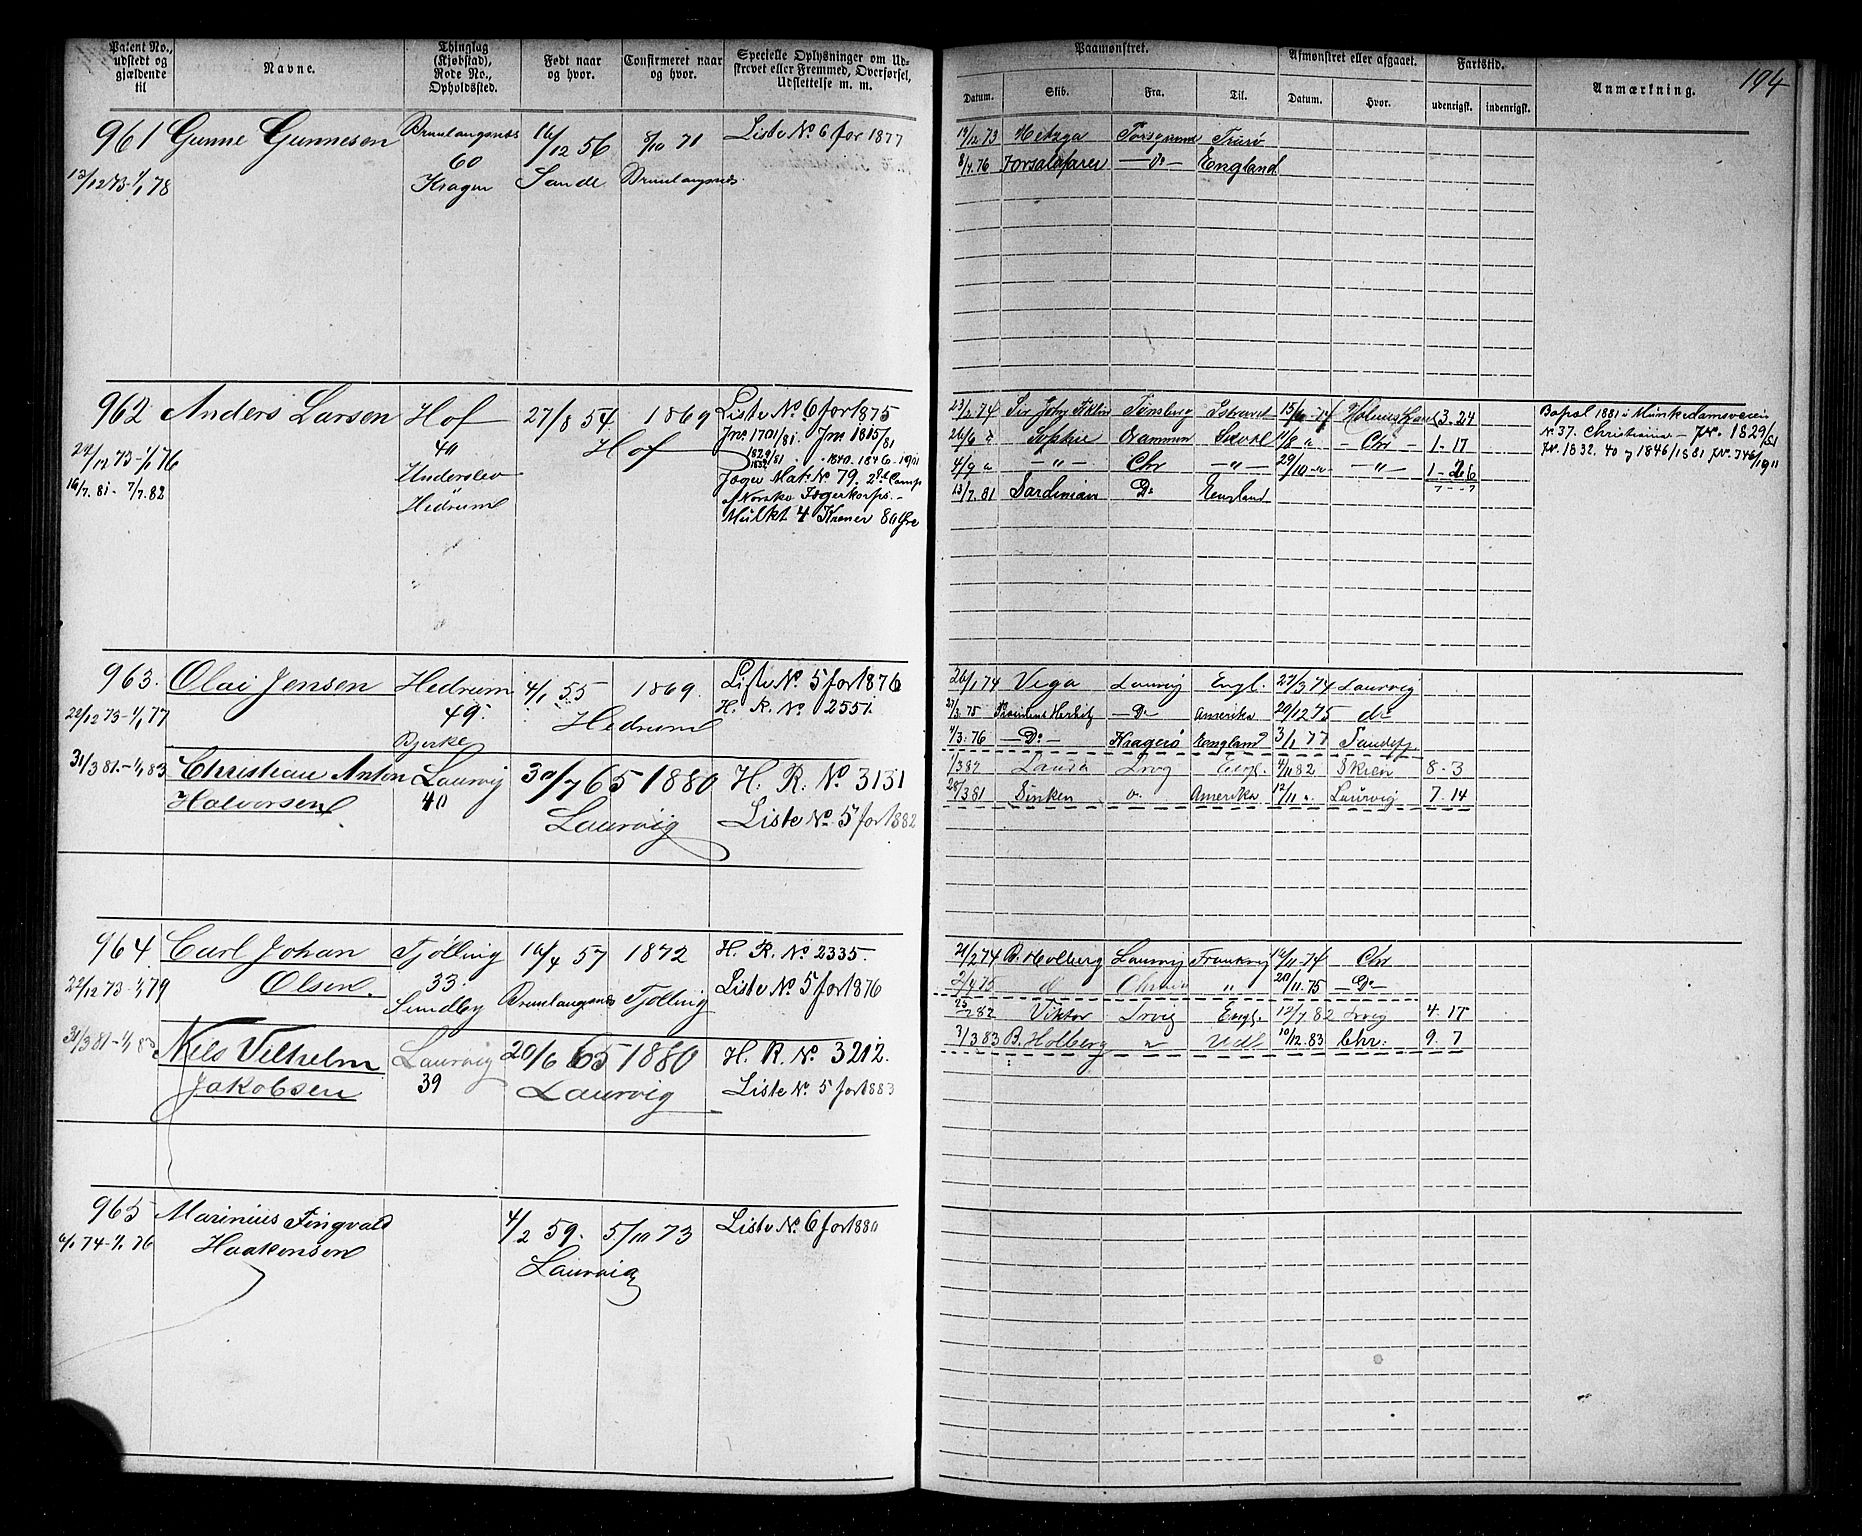 Patent No., udstedt og gjældende til
Navne.
Thinglag (Kjøbstad), Rode No., Opholdssted.
Født naar og hvor.
Confirmeret naar og hvor.
Specielle Oplysninger om Udskrevet eller Fremmed, Overførsel, Udslettelse m. m.
961 Gunne Gunnesen Brunlangsnæs 16/12 56 8/10 71 Liste No. 6 for 1877
60
13/12 73-1/1 78 Kragen Sande Brunlangsnæs
962 Anders Larsen Hof 27/8 54. 1869 Liste No. 6 for 1875
40 Hof Jn. 1701/81. Jn 1815/81
22/12 73-1/1 76 1829/81 1832 1840. 1846-1901
Underslev Jæger Mat. No. 79. 2den Comp
16/7. 81.- 7/7. 82 Hedrum Norske Jægerkorps.-
Mulkt 4 Kroner 80 Øre
963. Olai Jensen Hedrum 4/1 55 1869. Liste No. 5 for 1876
22/12 73-1/1 77 49. Hedrum H. R. No. 2551.
Bjerke
31/3 81.-1/1 83 Christian Anton Laurvig 30/7 65 1880 H. R. No. 3131
Halvorsen 40 Laurvig Liste No. 5 for 1882
964 Carl Johan Tjølling 16/4 57 1872 H. R. No 2335.
22/12 73-1/1 79 Olsen. 33. Brunlangsnæs Tjølling Liste No. 5 for 1876
Sundby
31/3 81-1/1 83 Nils Vilhelm Laurvig 20/6 65 1880 H. R. No. 3212.
Jakobsen 39 Laurvig Liste No. 5 for 1883
965 Marinius Tingvald 4/2 59. 5/10 73 Liste No. 6 for 1880
74-76 Haakensen Laurvig
194
Paamønstret.
Afmønstret eller afgaaet.
Fartstid.
Anmærkning.
Datum. Skib. Fra. Til. Datum. Hvor. udenrigst. indenrigst.
19/12 73
8/4. 76 -Do- England
23/2 74 Tønsberg 15/6 3. 24 Bopæl 1881 i Munkedamsveien
26/6 Sophie 11/8 - Chr - 1 - 17 No. 37. Christiania - JNo. 1829/81
4/9 - " - Chr - " - 29/10 - " - 1 - 26 JNo. 1832. 40 og 1846/1881 JNo. 746/1911
13/7. 81 Sardinian Do England
26/1 74 Vega Laurvig Engl. 22/3 74 Laurvig
27/3. 75 -Do- Amerika 20/12 75 do
4/3. 76 -Do- Kragerø England 3/1 77 Sandefj.
Lrvg Engl. 4/11 82 Skien 8. 3
28/3 81 Amerika 12/11 Laurvig 7. 14
21/2 74 B. Holberg Laurvig Frankrig 16/11. 74 Chr
" 20/11. 75 -Do-
82 Viktor Lrvig Engl. 12/7 82 Lrvig 4. 17
3/3 83 B. Holberg Udl 10/12. 83 Chr. 9. 7